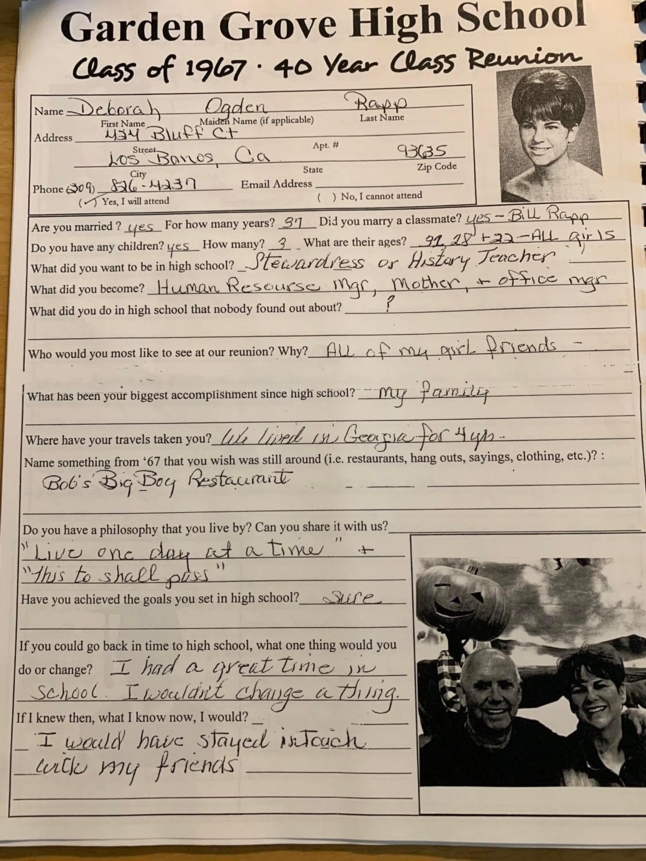 Garden Grove High School
Class of 1967 · 40 Year Class Reunion
Name Deborah Ogden Rapp
First Name Maiden Name (if applicable) Last Name
Address 434 Bluff Ct
Street Apt. #
Los Banos, Ca 93635
City State Zip Code
Phone (309) 826-4237 Email Address
(✓) Yes, I will attend ( ) No, I cannot attend
Are you married? yes For how many years? 37 Did you marry a classmate? yes - Bill Rapp
Do you have any children? yes How many? 3 What are their ages? 28 + 22 - All girls
What did you want to be in high school? Stewardress or History Teacher
What did you become? Human Resourse Mgr, Mother, + office mgr
What did you do in high school that nobody found out about? ?
Who would you most like to see at our reunion? Why? All of my girl friends -
What has been your biggest accomplishment since high school? my family
Where have your travels taken you? We lived in Georgia for 4 yrs.
Name something from '67 that you wish was still around (i.e. restaurants, hang outs, sayings, clothing, etc.)? :
Bob's Big Boy Restaurant
Do you have a philosophy that you live by? Can you share it with us?
"Live one day at a time" +
"this to shall pass"
Have you achieved the goals you set in high school? sure
If you could go back in time to high school, what one thing would you
do or change? I had a great time in
school. I wouldn't change a thing.
If I knew then, what I know now, I would?
I would have stayed in touch
with my friends